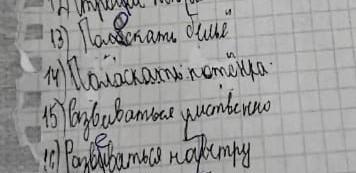 13) Полоскать бельё
14) Поласкать котёнка.
15) Развиваться умственно
16) Развеваться на ветру